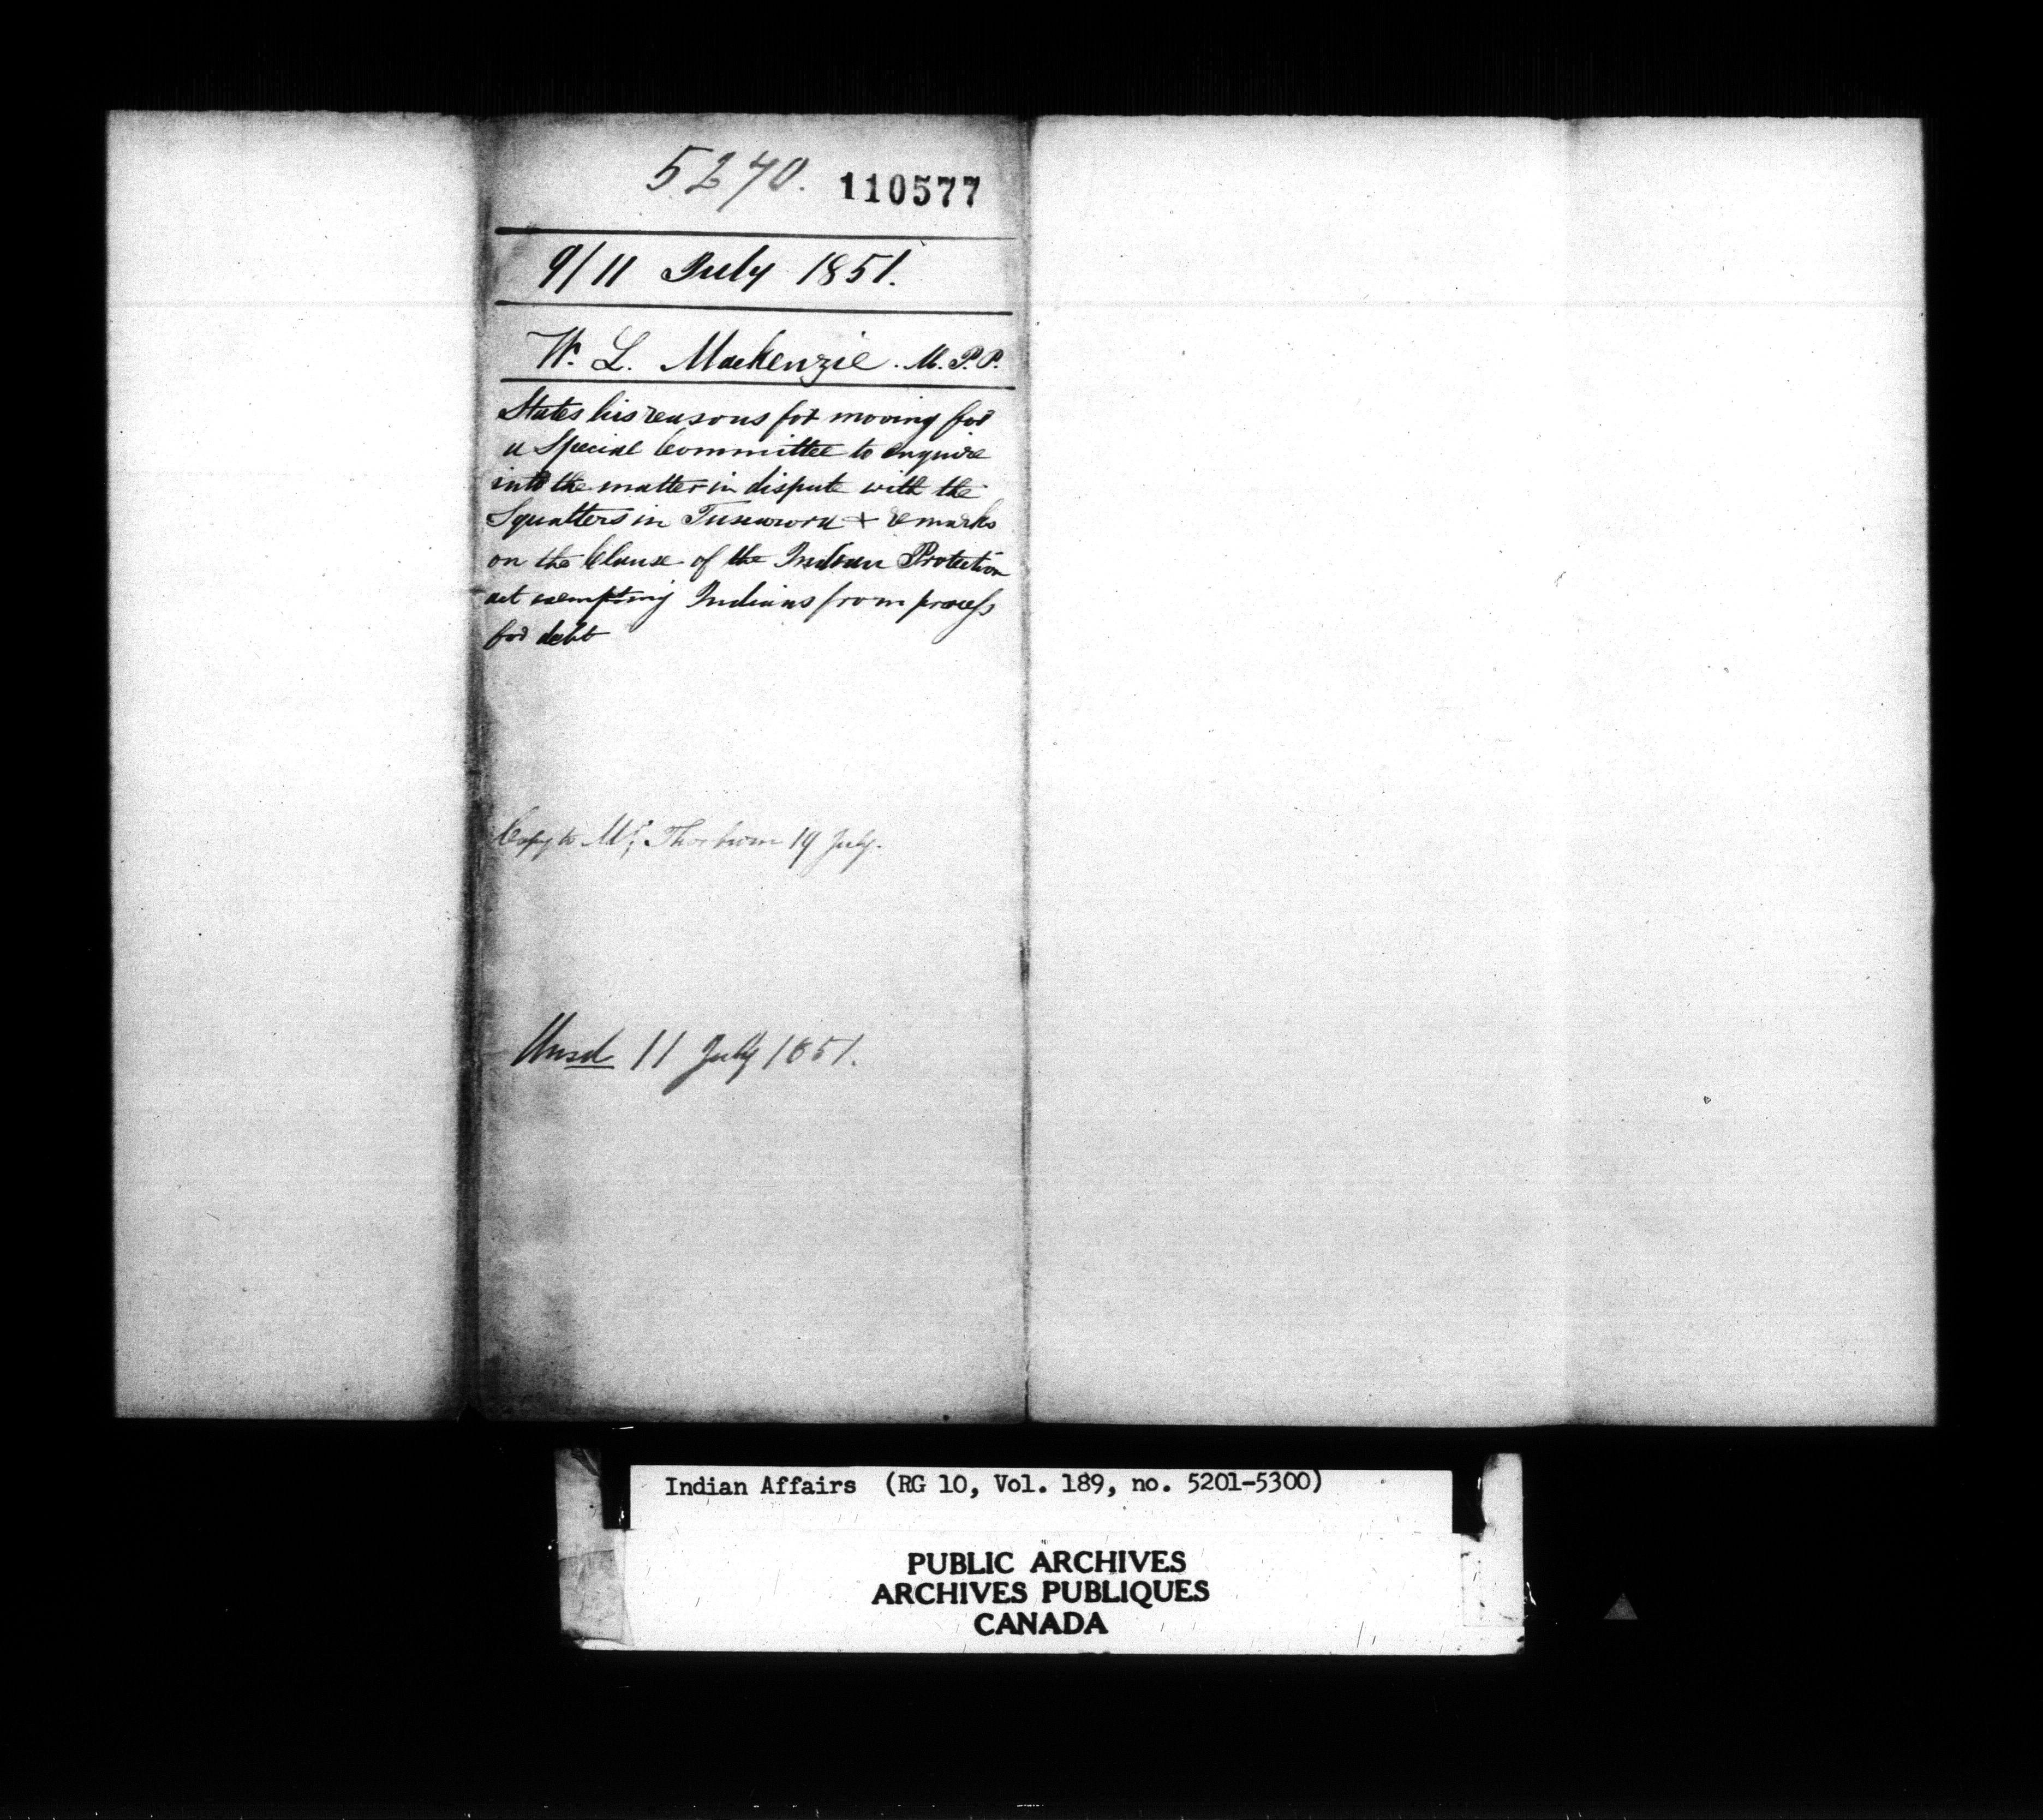 5270. 110577
9/11 July 1851.
W. L. Mackenzie. M.P.P.
States his reasons for moving for
a Special Committee to enquire
into the matter in dispute with the
Squatters in Tuscarora + remarks
on the Clause of the Indian Protection
act exempting Indians from process
for debt
Copy to Mr. Thorburn 19 July.
11 July 1851.
Indian Affairs (RG 10, Vol. 189, no. 5201-5300)
PUBLIC ARCHIVES
ARCHIVES PUBLIQUES
CANADA